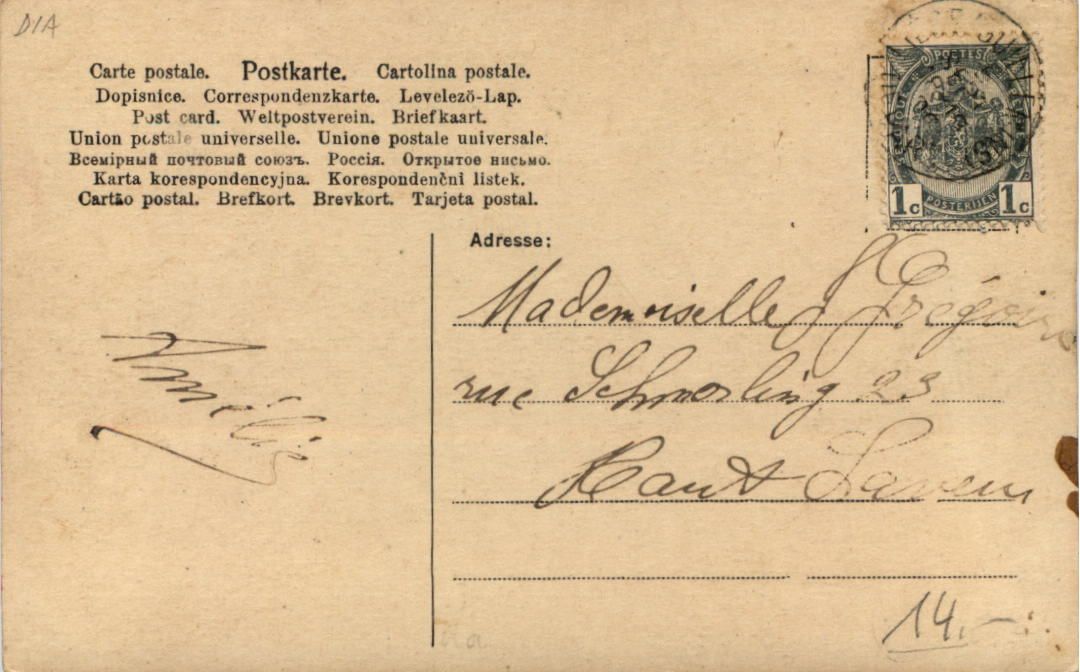 DIA
Carte postale. Postkarte. Cartolina postale.
Dopisnice. Correspondenzkarte. Levelező-Lap.
Post card. Weltpostverein. Briefkaart.
Union postale universelle. Unione postale universale.
Всемірный почтовый союзъ. Россія. Открытое письмо.
Karta korespondencyjna. Korespondenčni listek.
Cartão postal. Brefkort. Brevkort. Tarjeta postal.
POSTES
1c 1c
POSTERIJEN
Adresse:
Mademoiselle J Grégoire
rue Schmerling 23
Amélie
14.-